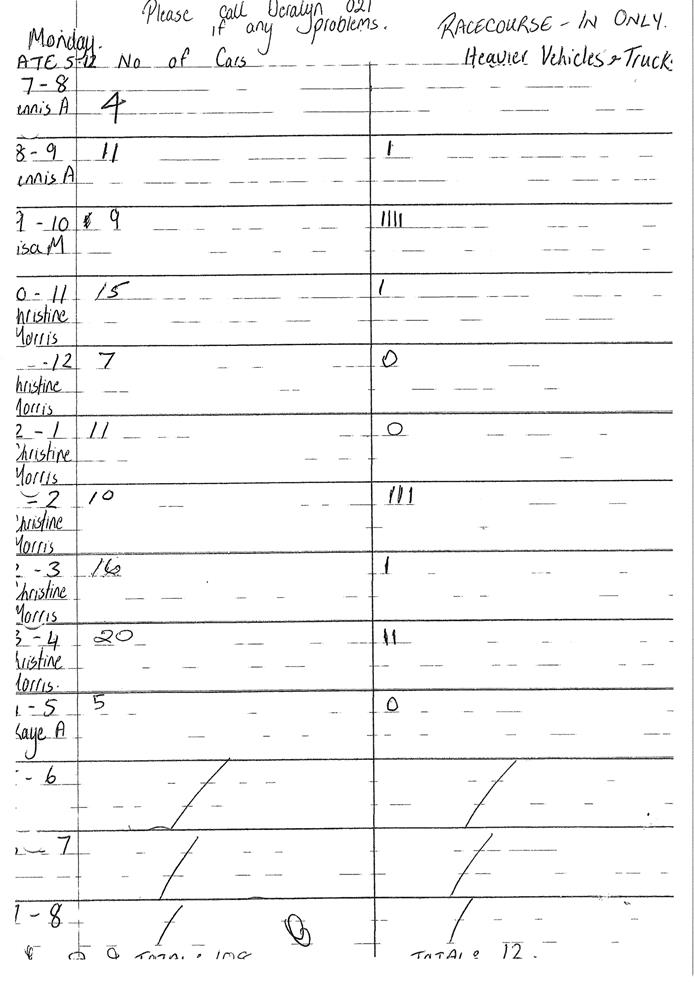 Please call Deralyn 021
if any problems.
RACECOURSE - IN ONLY.
Monday.
ATE 5-12 No of Cars Heavier Vehicles & Truck
7-8
ennis A 4
8-9 11 1
ennis A
9-10 9 IIII
isa M
0-11 15 1
hristine
Morris
-12 7 0
hristine
Morris
2-1 11 0
Christine
Morris
-2 10 III
Christine
Morris
-3 16 1
Christine
Morris
3-4 20 II
hristine
Morris.
-5 5 0
Kaye A
-6
7
-8
TOTAL: 108 TOTAL: 12.